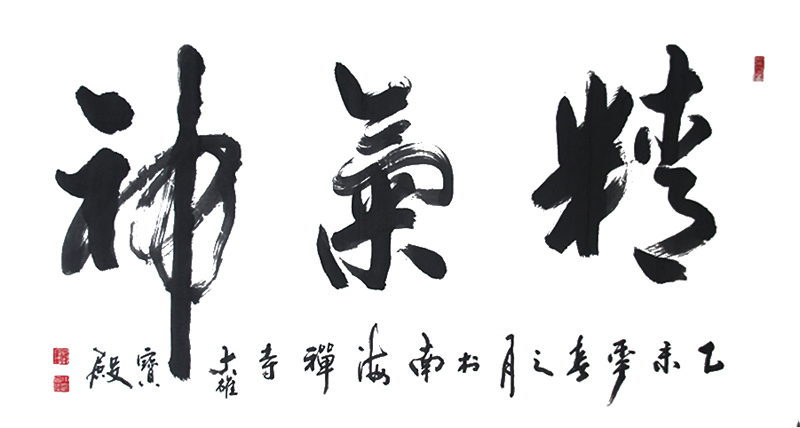 精氣神
乙未季春之月於南海禪寺大雄寶殿